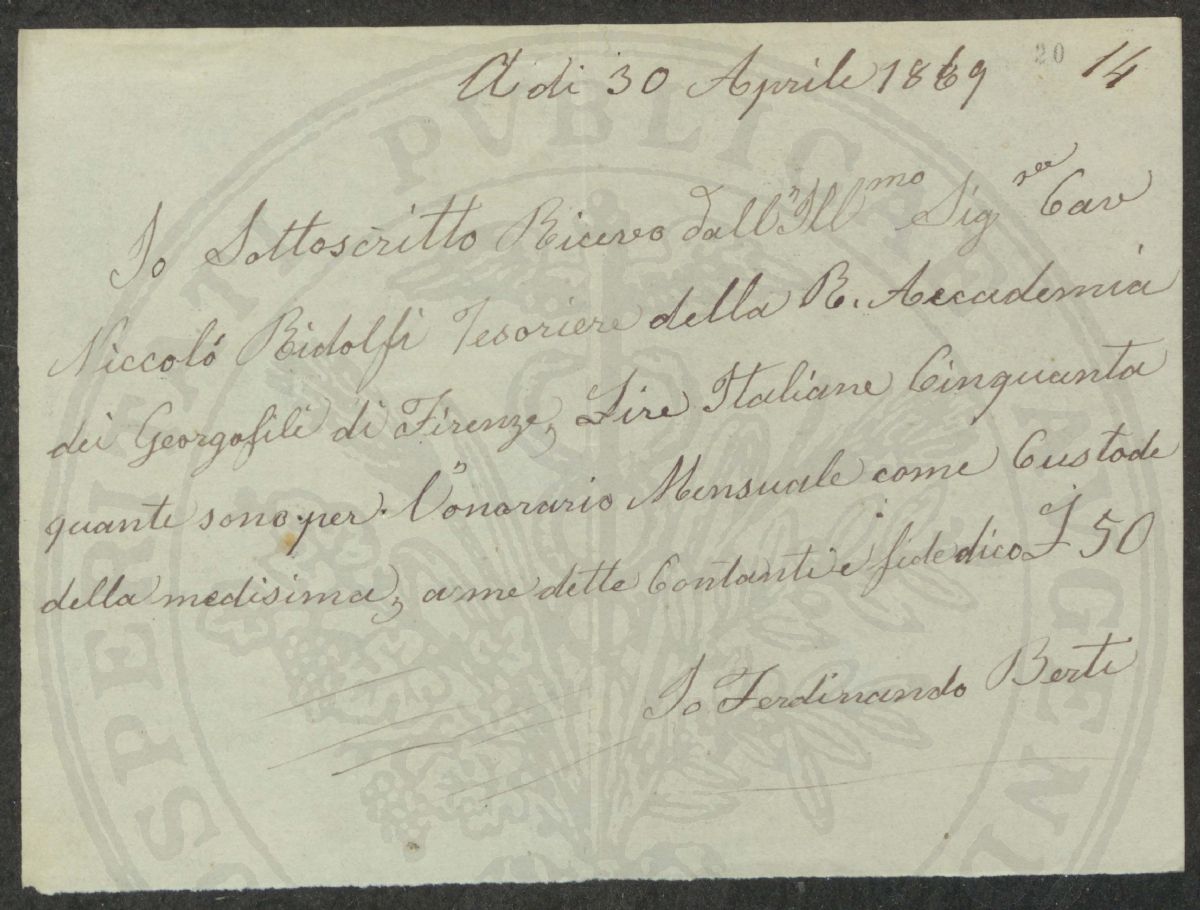 A di 30 Aprile 1869
20
14
Io Sottoscritto Ricevo dall'Ill mo Sig re Cav
Niccoló Ridolfi Tesoriere della R. Accademia
dei Georgofili di Firenze, Lire Italiane Cinquanta
quante sono per l'onorario Mensuale come Custode
della medisima, a me dette Contanti e fide dico £ 50
Io Ferdinando Berti
PROSPERITATI PVBLICAE AVGENDAE